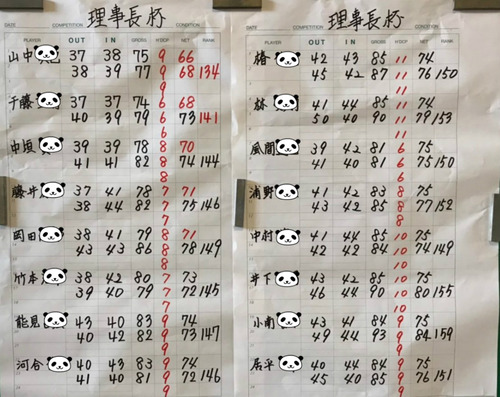 理事長杯
DATE COMPETITION CONDITION
PLAYER OUT IN GROSS H'DCP NET RANK
山中 37 38 75 9 66
38 39 77 9 68 134
9
千藤 37 37 74 6 68
40 39 79 6 73 141
6
中垣 39 39 78 8 70
41 41 82 8 74 144
8
藤井 37 41 78 7 71
38 44 82 7 75 146
7
岡田 38 41 79 8 71
43 43 86 8 78 149
8
竹本 38 42 80 7 73
39 40 79 7 72 145
7
能見 43 40 83 9 74
40 42 82 9 73 147
9
河合 40 43 83 9 74
41 40 81 9 72 146
9
理事長杯
DATE COMPETITION CONDITION
PLAYER OUT IN GROSS H'DCP NET RANK
椿 42 43 85 11 74
45 42 87 11 76 150
11
林 41 44 85 11 74
50 40 90 11 79 153
11
風間 39 42 81 6 75
41 40 81 6 75 150
6
浦野 41 42 83 8 75
43 42 85 8 77 152
8
中村 41 44 85 10 75
42 42 84 10 74 149
10
井下 43 42 85 10 75
46 44 90 10 80 155
10
小南 43 41 84 9 75
49 44 93 9 84 159
9
居平 40 44 84 9 75
45 40 85 9 76 151
9